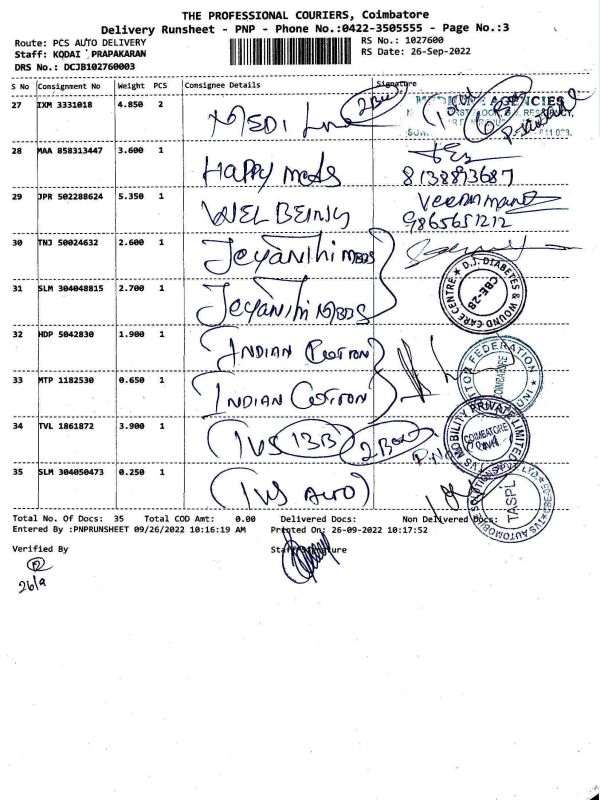 THE PROFESSIONAL COURIERS, Coimbatore
Delivery Runsheet - PNP - Phone No.:0422-3505555 - Page No.:3
Route: PCS AUTO DELIVERY
RS No.: 1027600
Staff: KODAI PRAPAKARAN
RS Date: 26-Sep-2022
DRS No.: DCJB102760003
S No Consignment No Weight PCS Consignee Details Signature
27 IXM 3331018 4.850 2 MEDI Line 2 Box
AGENCIES
28 MAA 858313447 3.600 1 HAPPY meds
8138893687
29 JPR 502288624 5.350 1 WELBEING
9865651212
30 TNJ 50024632 2.600 1 Jeyanthi MBDS
D.J. DIABETES & WOUND CARE CENTRE CBE-28
31 SLM 304048815 2.700 1 Jeyanthi MBDS
32 HDP 5042830 1.900 1 INDIAN COTTON
FEDERATION
COIMBATORE
33 MTP 1182530 0.650 1 INDIAN COTTON
34 TVL 1861872 3.900 1 TVS 13B 2 Box
TVS MOBILITY PRIVATE LIMITED
COIMBATORE
35 SLM 304050473 0.250 1 TVS Auto
TASPL
Total No. Of Docs: 35 Total COD Amt: 0.00 Delivered Docs: Non Delivered Docs:
Entered By :PNPRUNSHEET 09/26/2022 10:16:19 AM Printed On: 26-09-2022 10:17:52
Verified By Staff Signature
26/9